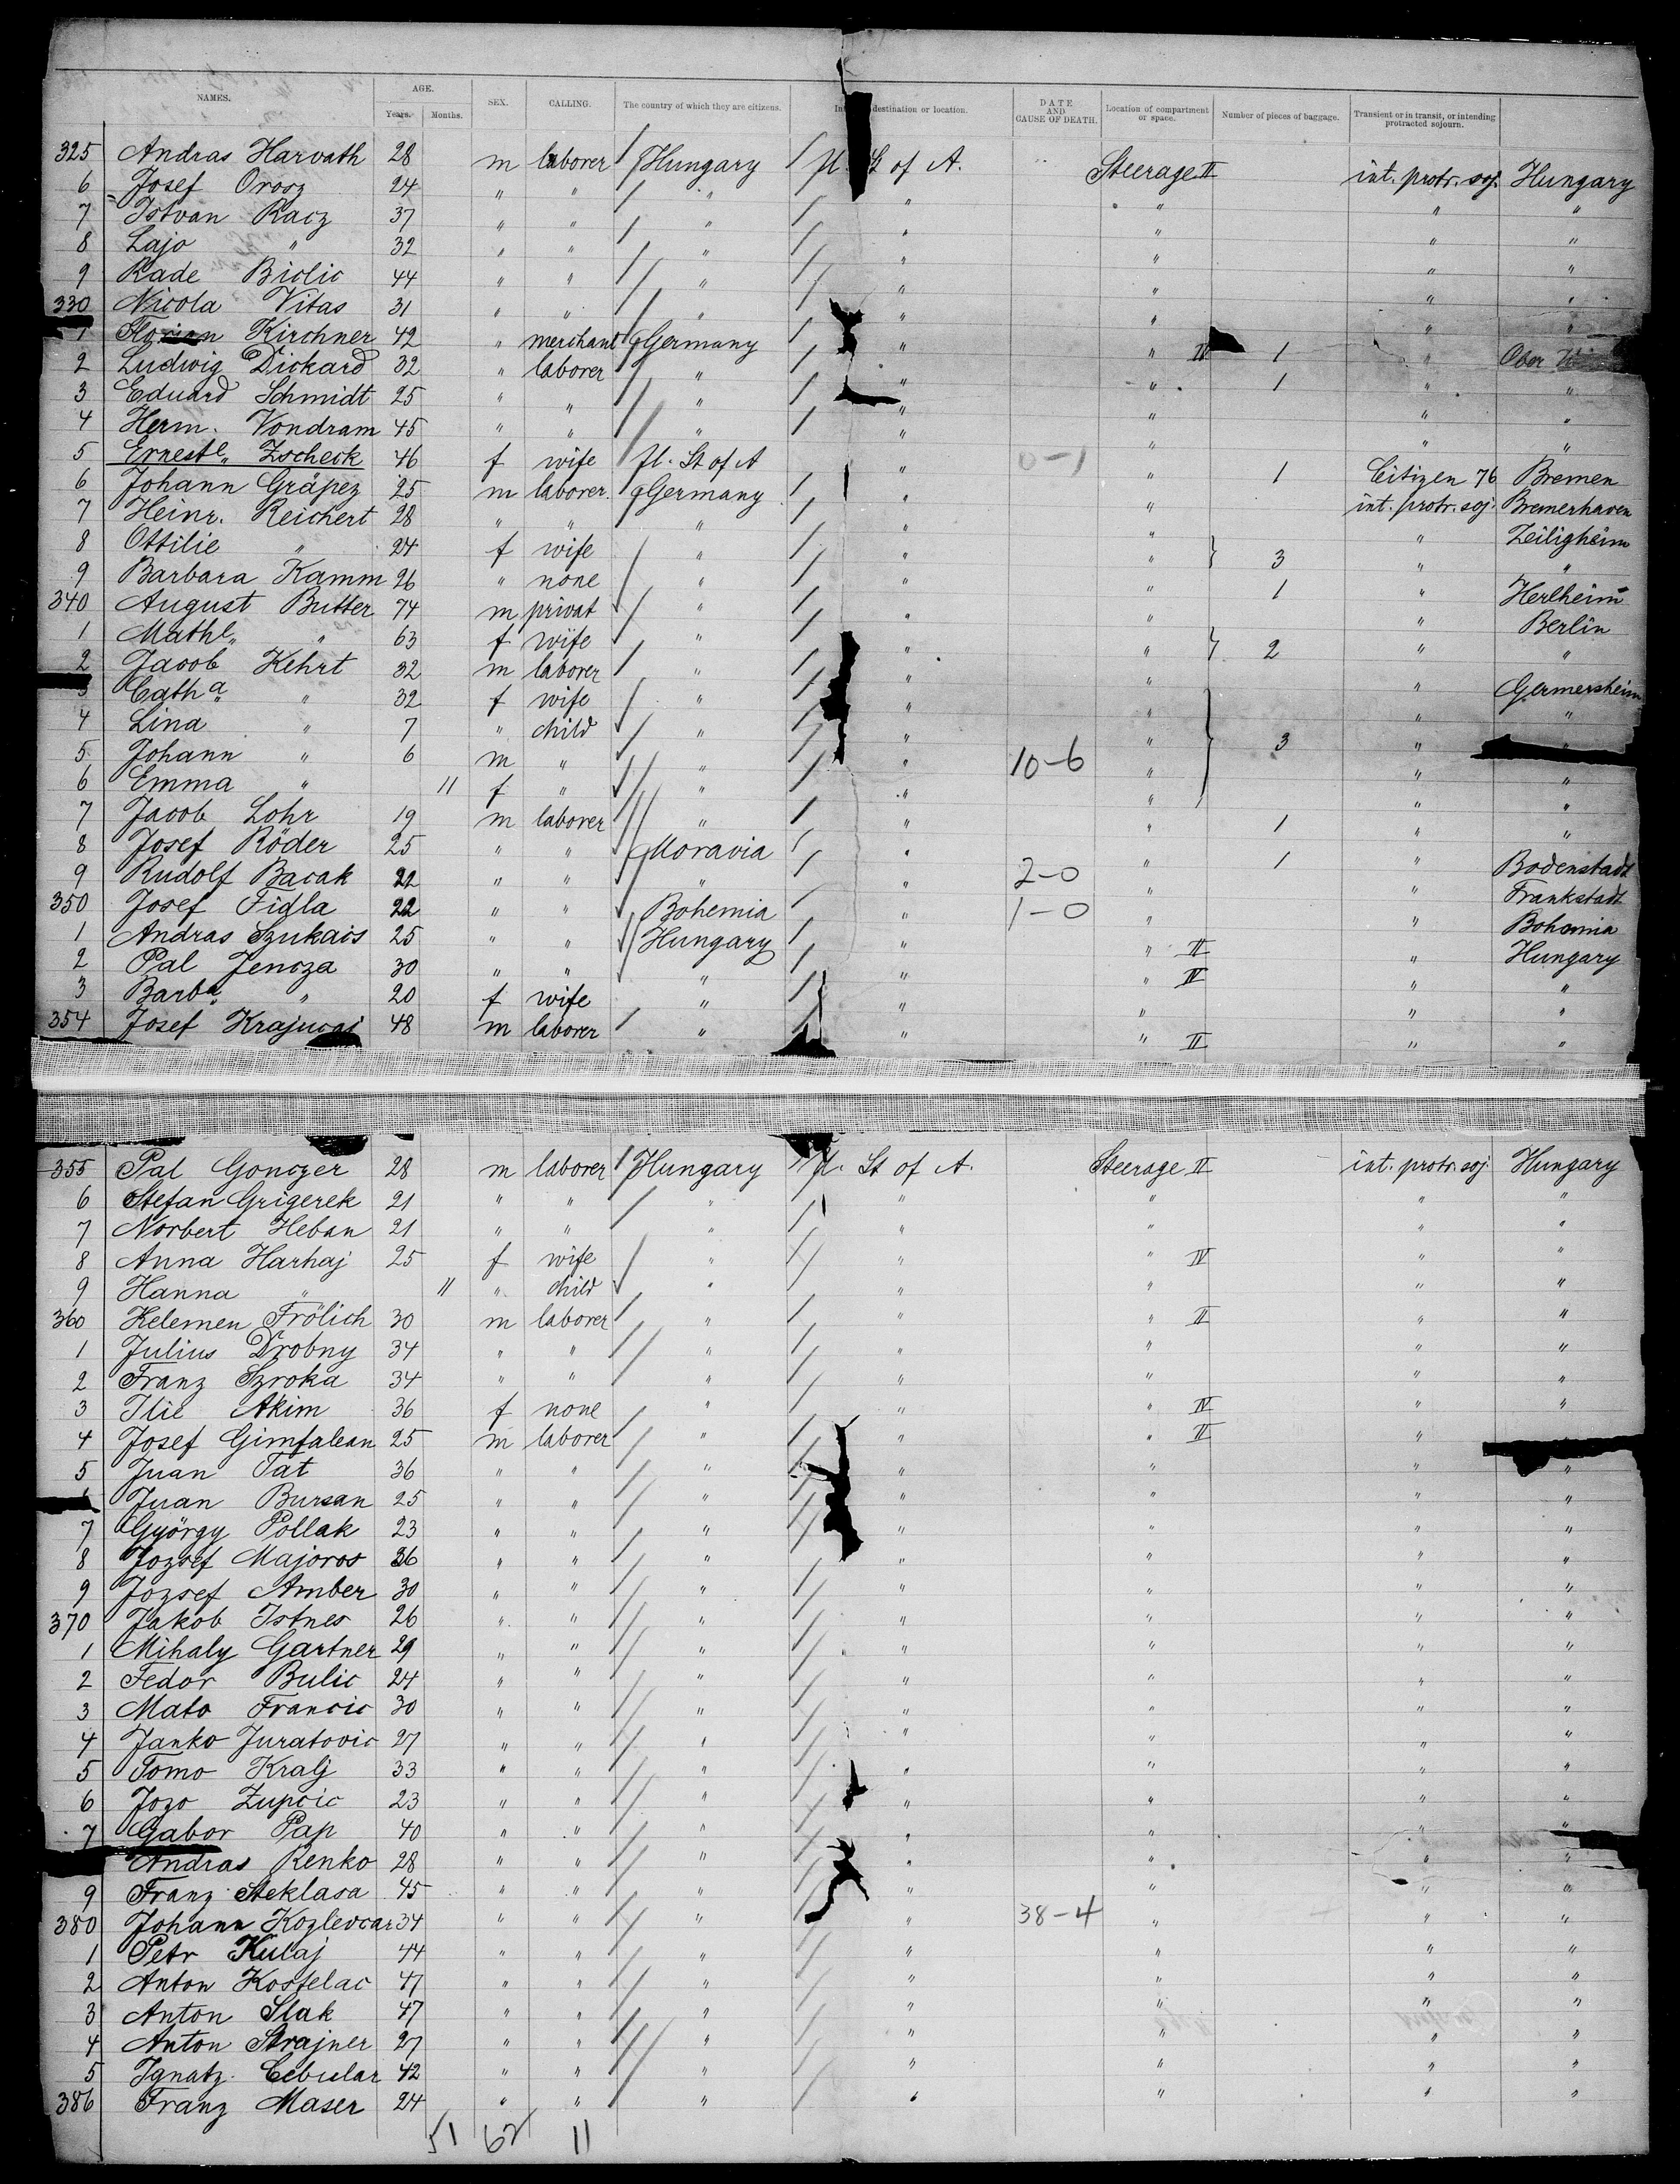 NAMES. AGE. SEX. CALLING. The country of which they are citizens. destination or location. DATE AND CAUSE OF DEATH. Location of compartment or space. Number of pieces of baggage. Transient or in transit, or intending protracted sojourn.
Years. Months.
325 Andras Harvath 28 m laborer Hungary St of A. Steerage II int. protr. soj. Hungary
6 Josef Orosz 24 " " " " " " "
7 Istvan Racz 37 " " " " " " "
8 Lajo " 32 " " " " " " "
9 Rade Biclic 44 " " " " " " "
330 Nicola Vitas 31 " " " " " " "
1 Florian Kirchner 42 " merchant Germany " " IV 1 " Ober
2 Ludwig Dickard 32 " laborer " " " 1 " "
3 Eduard Schmidt 25 " " " " " " "
4 Herm. Vondram 45 " " " " " " "
5 Ernestl. Zscheck 46 f wife U. St of A " 0-1 " 1 Citizen 76 Bremen
6 Johann Gräpez 25 m laborer. Germany " " int. protr. soj. Bremerhaven
7 Heinr. Reichert 28 " " " " " " Zeiligheim
8 Ottilie " 24 f wife " " " } 3 " "
9 Barbara Kamm 26 " none " " " 1 " Herlheim
340 August Butter 74 m privat " " " " Berlin
1 Mathl. " 63 f wife " " " } 2 " "
2 Jacob Kehrt 32 m laborer " " " " Germersheim
3 Catha " 32 f wife " " " " "
4 Lina " 7 " child " " " } 3 " "
5 Johann " 6 m " " " 10-6 " " "
6 Emma " 11 f " " " " " "
7 Jacob Lohr 19 m laborer " " " 1 " "
8 Josef Röder 25 " " Moravia " " 1 " Bodenstadt
9 Rudolf Bacak 22 " " " " 2-0 " " Frankstadt
350 Josef Fidla 22 " " Bohemia " 1-0 " " Bohemia
1 Andras Szukais 25 " " Hungary " " II " Hungary
2 Pal Jencza 30 " " " " " IV " "
3 Barba. " 20 f wife " " " " "
354 Josef Krajucai 48 m laborer " " " II " "
355 Pal Gonczer 28 m laborer Hungary U. St of A. Steerage II int. protr. soj. Hungary
6 Stefan Grigerek 21 " " " " " " "
7 Norbert Heban 21 " " " " " " "
8 Anna Harhaj 25 f wife " " " IV " "
9 Hanna " 11 " child " " " " "
360 Kelemen Frölich 30 m laborer " " " II " "
1 Julius Drobny 34 " " " " " " "
2 Franz Szroka 34 " " " " " " "
3 Ilie Akim 36 f none " " " IV " "
4 Josef Gimfalean 25 m laborer " " " II "
5 Juan Tat 36 " " " " " " "
Juan Bursan 25 " " " " " " "
7 György Pollak 23 " " " " " " "
8 Jozsef Majoros 36 " " " " " " "
9 Jozsef Amber 30 " " " " " " "
370 Jakob Istnes 26 " " " " " " "
1 Mihaly Gartner 29 " " " " " " "
2 Fedor Bulic 24 " " " " " " "
3 Mato Francic 30 " " " " " " "
4 Janko Juratovic 27 " " " " " " "
5 Tomo Kralj 33 " " " " " " "
6 Jozo Zupcic 23 " " " " " " "
7 Gabor Pap 40 " " " " " " "
Andras Renko 28 " " " " " " "
9 Franz Steklasa 45 " " " " " " "
380 Johann Kozlevcar 34 " " " " 38-4 " " "
1 Petr Kulaj 44 " " " " " " "
2 Anton Kostelac 47 " " " " " " "
3 Anton Slak 47 " " " " " " "
4 Anton Strajner 27 " " " " " " "
5 Ignatz Cebular 42 " " " " " " "
386 Franz Maser 24 " " " " " " "
51 62 11